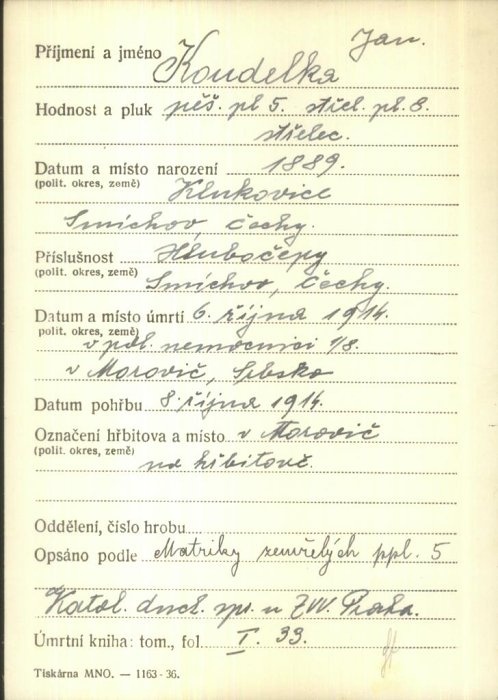 Jan.
Příjmení a jméno Koudelka
Hodnost a pluk pěš. pl 5. střel. pl. 8.
střelec.
Datum a místo narození 1889.
(polit. okres, země) Klukovice
Smíchov, Čechy.
Příslušnost Hlubočepy
(polit. okres, země) Smíchov, Čechy.
Datum a místo úmrtí 6. října 1914.
polit. okres, země)
v pol. nemocnici 1/8.
v Morovič, Srbsko
Datum pohřbu 8. října 1914.
Označení hřbitova a místo v Morovič
(polit. okres, země) na hřbitově.
Oddělení, číslo hrobu
Opsáno podle Matriky zemřelých ppl. 5
Katol. duch. spr. u ZVV. Praha.
Úmrtní kniha: tom., fol. I. 33.
Tiskárna MNO. — 1163-36.